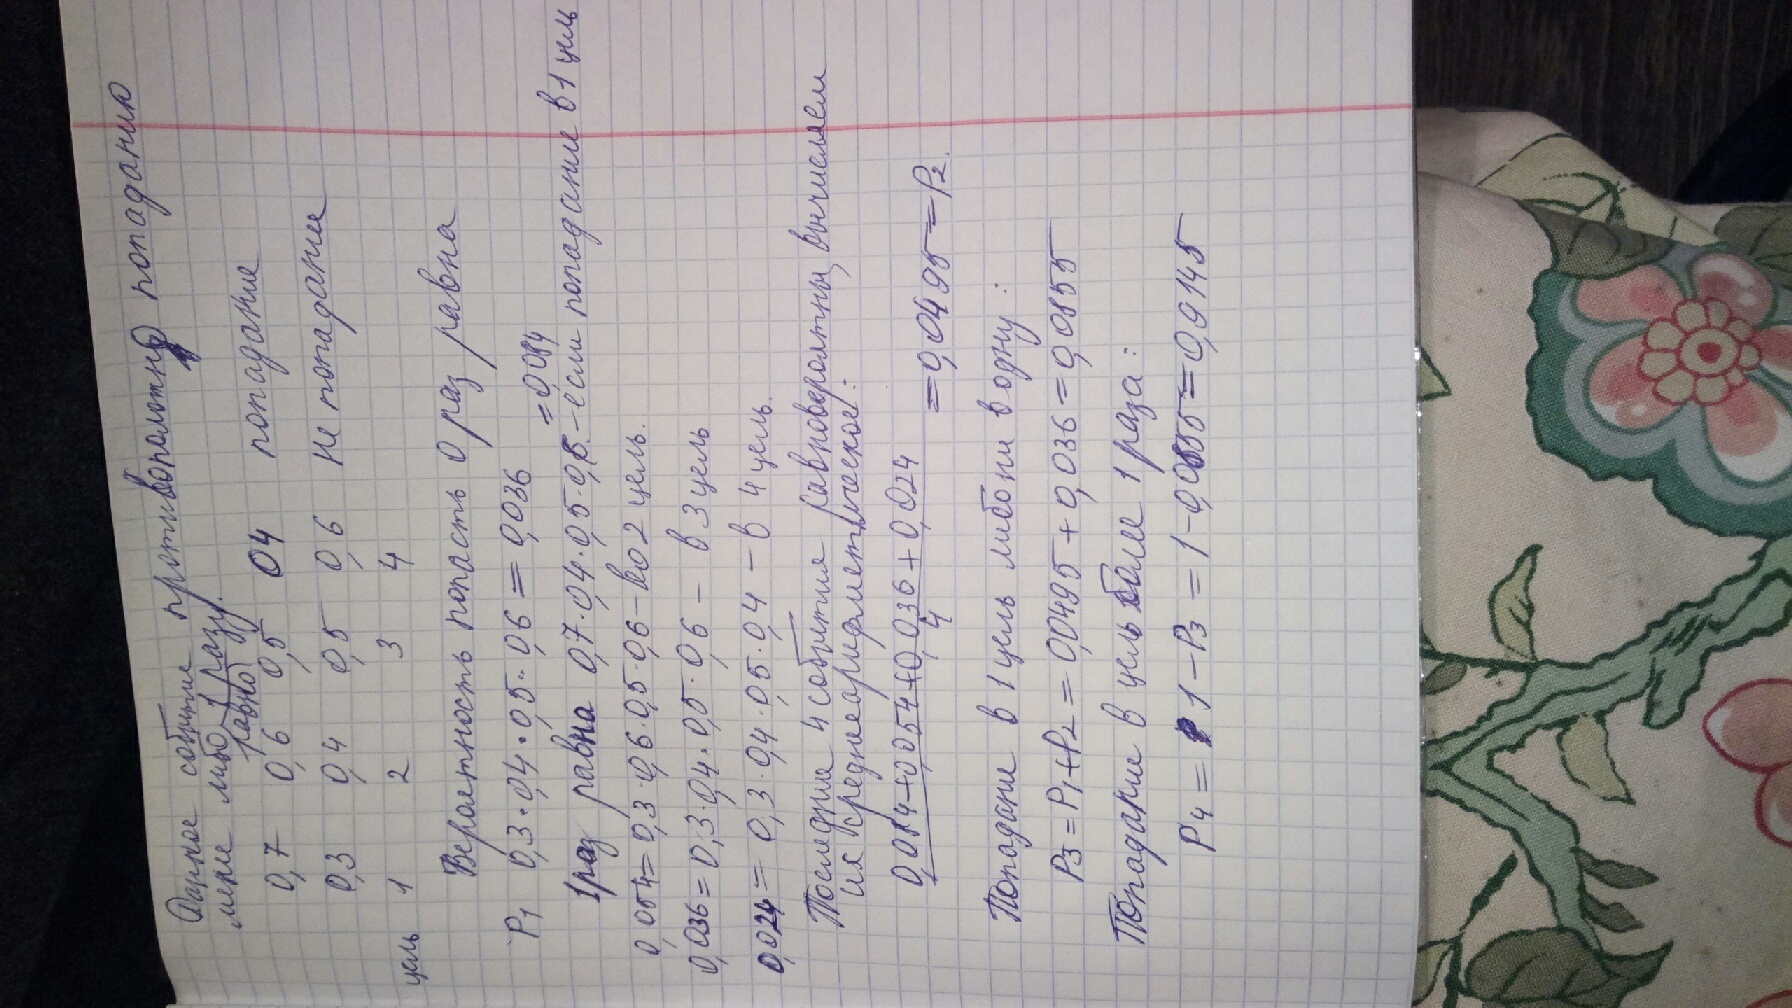 Данное событие противоположно попаданию
мене либо 1 разу.
равно
0,7 0,6 0,5 04 попадание
0,3 0,4 0,5 0,6 не попадание
цель 1 2 3 4
Вероятность попасть 0 раз равна
P1 0,3·0,4·0,5·0,6=0,036
=0,084
1 раз равна 0,7·0,4·0,5·0,6-если попадание в 1 цель
0,054=0,3·0,6·0,5·0,6-во 2 цель.
0,036=0,3·0,4·0,5·0,6 - в 3 цель
0,024=0,3·0,4·0,5·0,4 - в 4 цель.
Последние 4 события равновероятны, вычисляем
их среднеарифметрическое:
0,084+0,054+0,036+0,024
=0,0495=P2.
4
Попадание в 1 цель либо ни в одну:
P3=P1+P2=0,0495+0,036=0,0855
Попадание в цель более 1 раза:
P4=1-P3=1-0,0855=0,9145